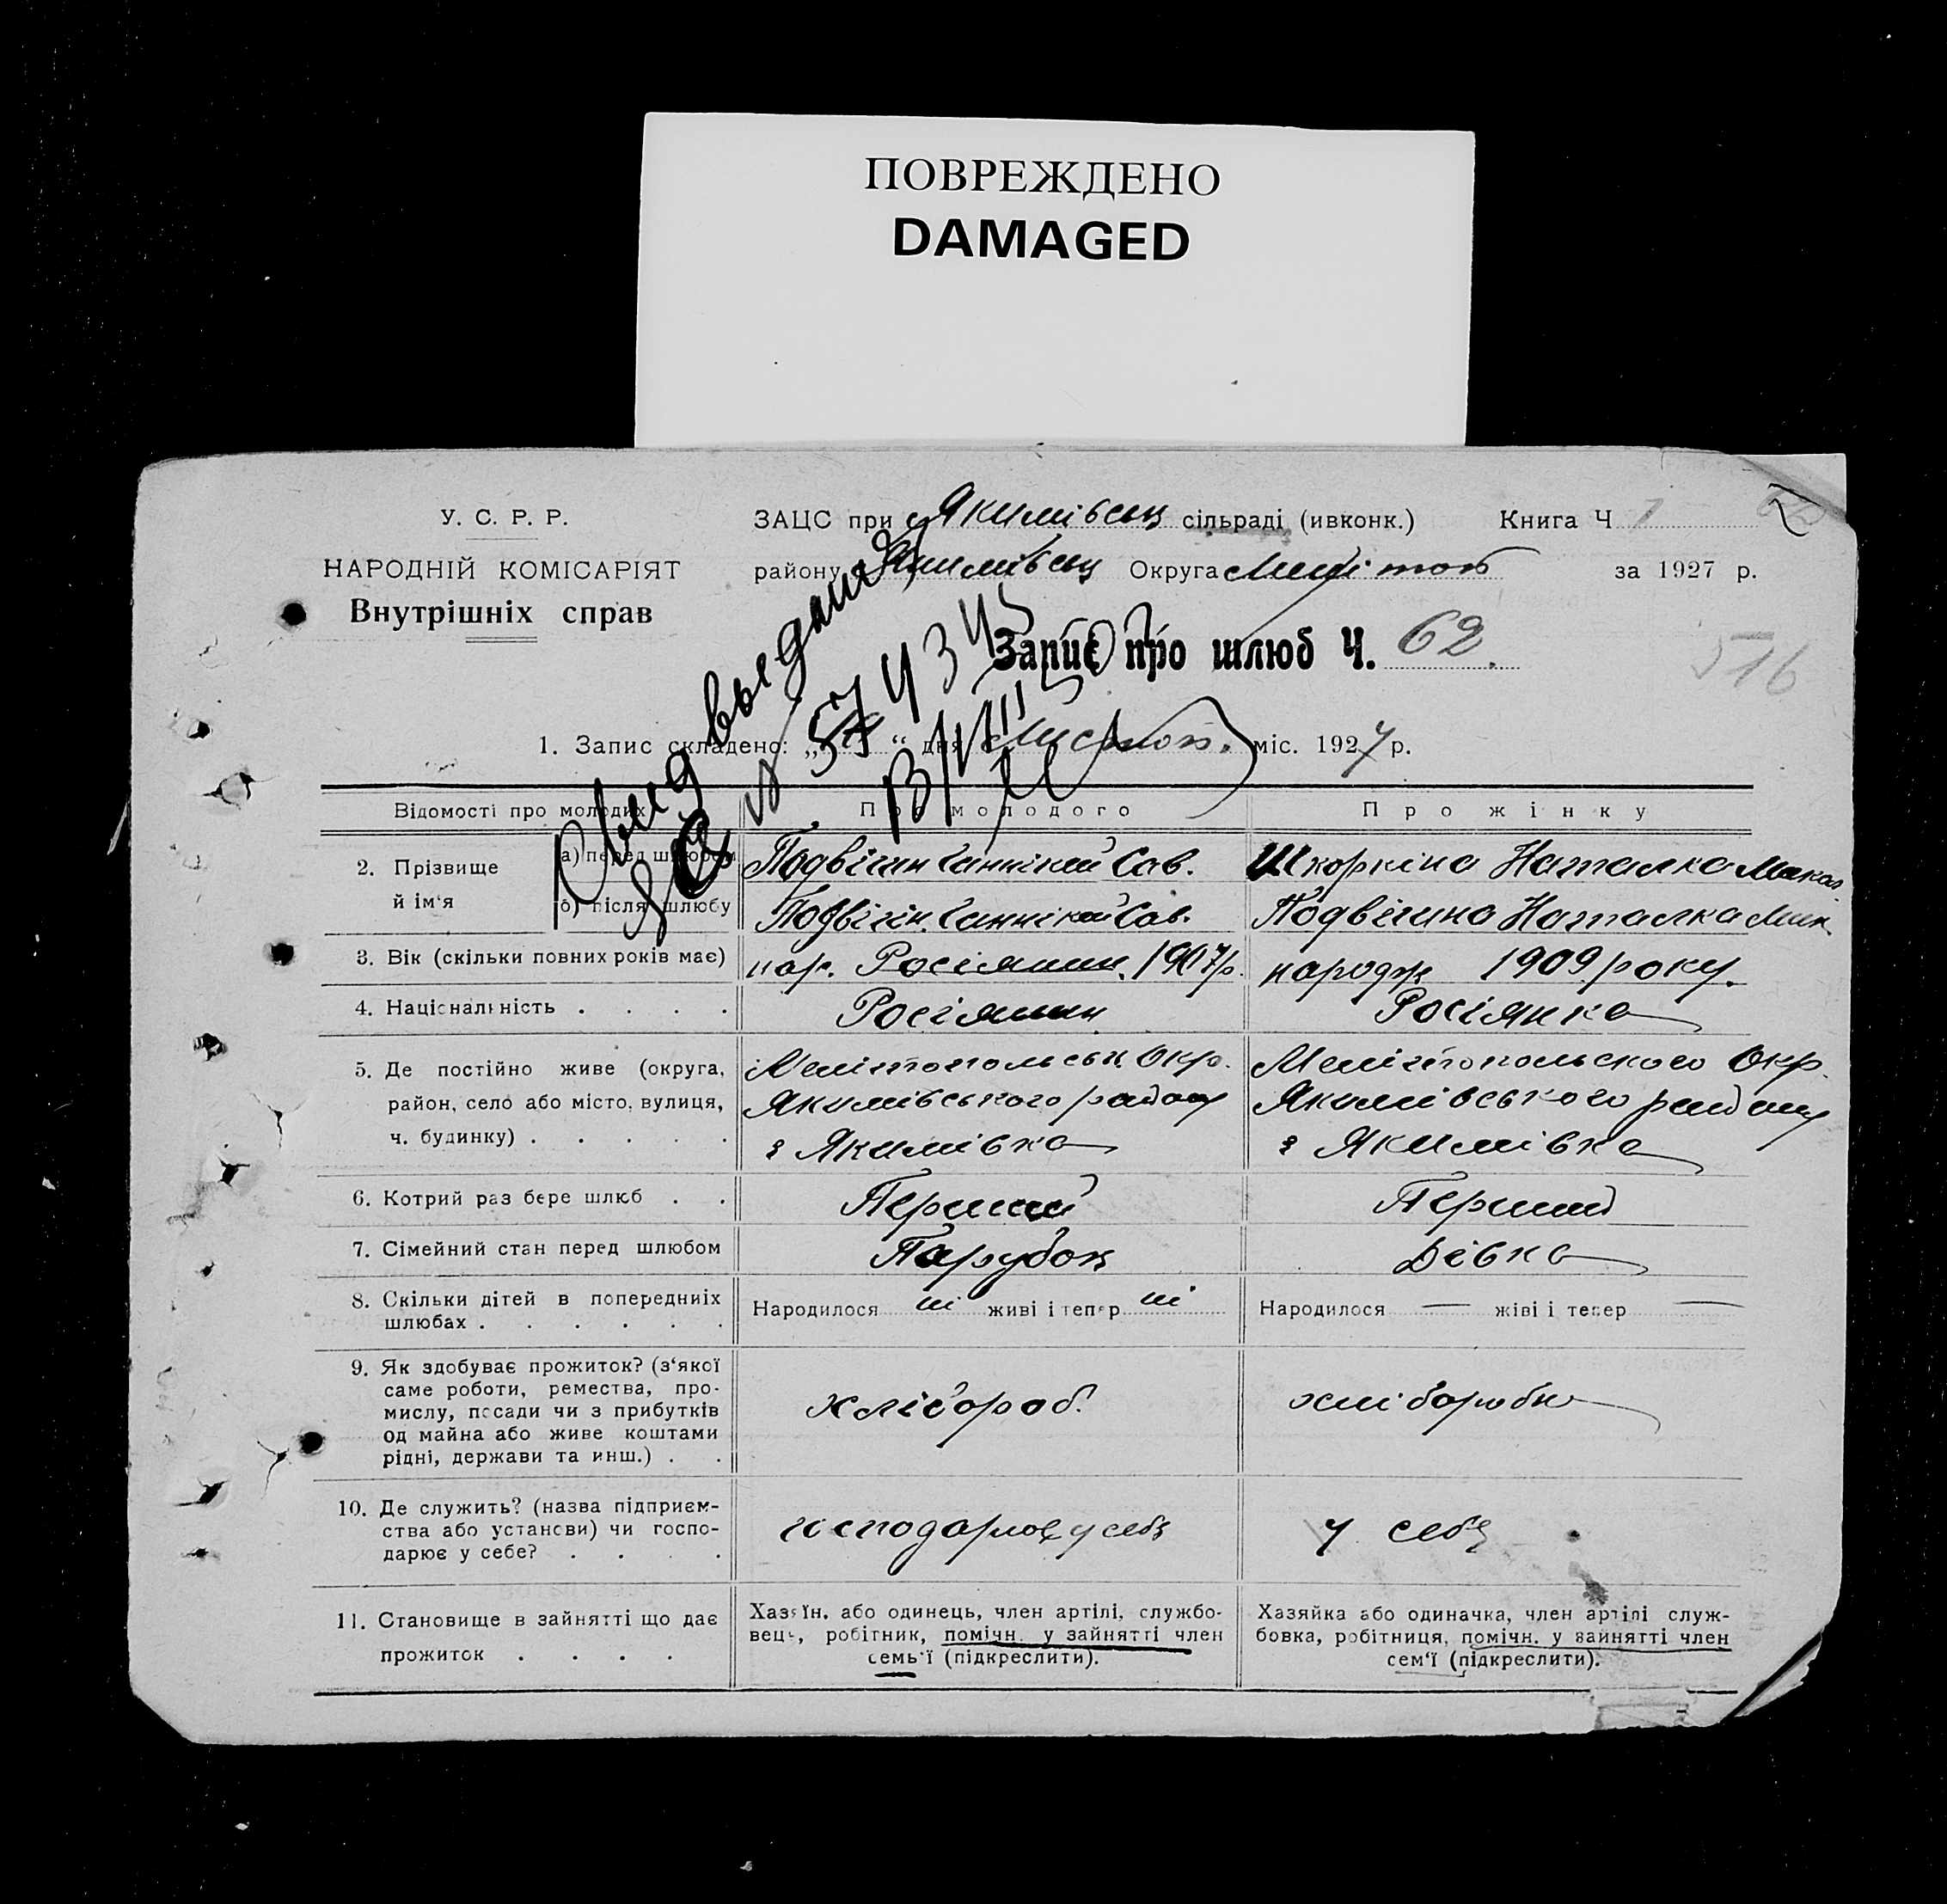 ПОВРЕЖДЕНО
DAMAGED
У. С. Р. Р.
НАРОДНІЙ КОМІСАРІЯТ
Внутрішніх справ
ЗАЦС при Якимівськ сільраді (ивконк.) Книга Ч 1
району Якимівськ Округа Мелітоп за 1927 р.
Запис про шлюб Ч. 62.
516
1. Запис складено: „ “ дня міс. 1927 р.
Відомості про молодих
Про молодого
Про жінку
2. Прізвище й ім‘я
а) перед шлюбом
Подвігин Сав.
Шкоркіна Наталка Микол
б) після шлюбу
Подвігін Сав.
Подвігина Наталка Мик.
3. Вік (скільки повних років має)
нар. Росіянин. 1907р.
народж 1909 року.
4. Національність . . . .
Росіянин
Росіянка
5. Де постійно живе (округа,
район, село або місто, вулиця,
ч. будинку) . . . . .
Мелітопольськ. Окр.
Якимівського району
з Якимівка
Мелітопольского Окр.
Якимівського району
з Якимівка
6. Котрий раз бере шлюб . .
Перший
Перший
7. Сімейний стан перед шлюбом
Парубок
Дівка
8. Скільки дітей в попередниіх
шлюбах . . . . . .
Народилося ні живі і тепер ні
Народилося — жіві і тепер —
9. Як здобуває прожиток? (з‘якої
саме роботи, ремества, про-
мислу, посади чи з прибутків
од майна або живе коштами
рідні, держави та инш.) . .
хлібороб.
хліборобка
10. Де служить? (назва підприєм-
ства або установи) чи госпо-
дарює у себе? . . . .
господарює у себе
у себе
11. Становище в зайнятті що дає
прожиток . . . .
Хазяїн, або одинець, член артілі, службо-
вець, робітник, помічн. у зайнятті член
семь‘ї (підкреслити).
Хазяйка або одиначка, член артілі служ-
бовка, робітниця, помічн. у зайнятті член
сем‘ї (підкреслити).